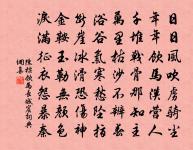 日日風吹虜騎塵
年年飲馬漢營人
千堆戰骨那知主
萬里枯沙不辨春
浴谷氣寒愁墜指
斷崖冰滑恐傷神
金鞍玉勒無顏色
淚滿征衣怨暴秦
陳標飲馬長城窟詞典
網集